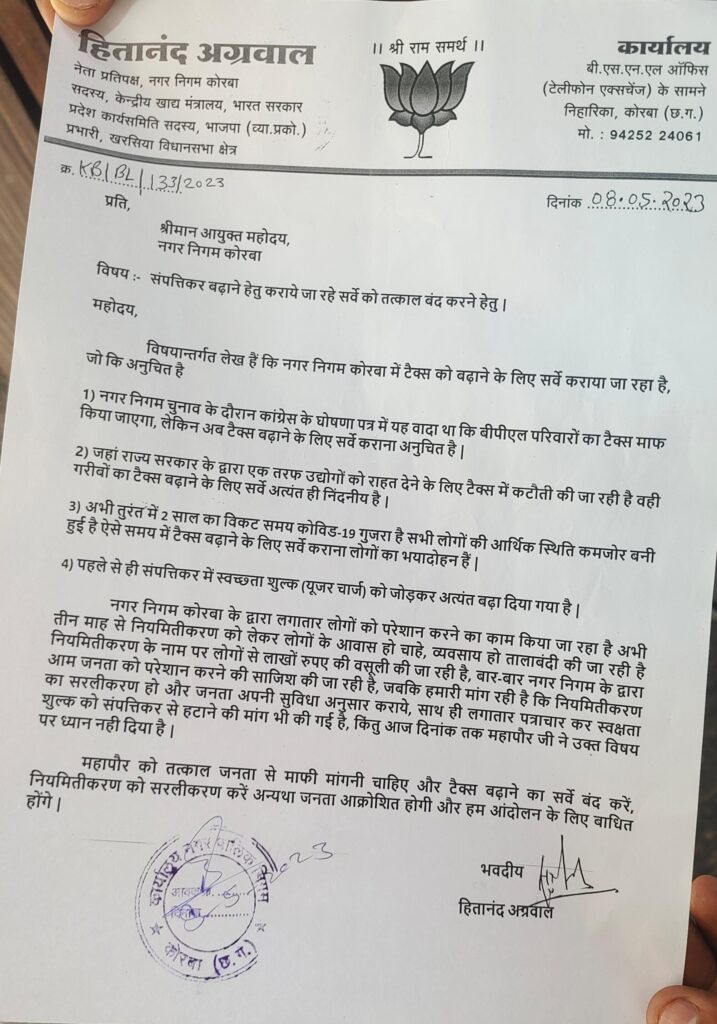 हितानंद अग्रवाल
नेता प्रतिपक्ष, नगर निगम कोरबा
सदस्य, केन्द्रीय खाद्य मंत्रालय, भारत सरकार
प्रदेश कार्यसमिति सदस्य, भाजपा (व्या.प्रको.)
प्रभारी, खरसिया विधानसभा क्षेत्र
।। श्री राम समर्थ ।।
कार्यालय
बी.एस.एन.एल ऑफिस
(टेलीफोन एक्सचेंज) के सामने
निहारिका, कोरबा (छ.ग.)
मो. : 94252 24061
क्र. KB/BL/133/2023
दिनांक 08.05.2023
प्रति,
श्रीमान आयुक्त महोदय,
नगर निगम कोरबा
विषय :- संपत्तिकर बढ़ाने हेतु कराये जा रहे सर्वे को तत्काल बंद करने हेतु |
महोदय,
विषयान्तर्गत लेख हैं कि नगर निगम कोरबा में टैक्स को बढ़ाने के लिए सर्वे कराया जा रहा है,
जो कि अनुचित है
1) नगर निगम चुनाव के दौरान कांग्रेस के घोषणा पत्र में यह वादा था कि बीपीएल परिवारों का टैक्स माफ
किया जाएगा, लेकिन अब टैक्स बढ़ाने के लिए सर्वे कराना अनुचित है |
2) जहां राज्य सरकार के द्वारा एक तरफ उद्योगों को राहत देने के लिए टैक्स में कटौती की जा रही है वही
गरीबों का टैक्स बढ़ाने के लिए सर्वे अत्यंत ही निंदनीय है |
3) अभी तुरंत में 2 साल का विकट समय कोविड-19 गुजरा है सभी लोगों की आर्थिक स्थिति कमजोर बनी
हुई है ऐसे समय में टैक्स बढ़ाने के लिए सर्वे कराना लोगों का भयादोहन हैं |
4) पहले से ही संपत्तिकर में स्वच्छता शुल्क (यूजर चार्ज) को जोड़कर अत्यंत बढ़ा दिया गया है |
नगर निगम कोरबा के द्वारा लगातार लोगों को परेशान करने का काम किया जा रहा है अभी
तीन माह से नियमितीकरण को लेकर लोगों के आवास हो चाहे, व्यवसाय हो तालाबंदी की जा रही है
नियमितीकरण के नाम पर लोगों से लाखों रुपए की वसूली की जा रही है, बार-बार नगर निगम के द्वारा
आम जनता को परेशान करने की साजिश की जा रही है, जबकि हमारी मांग रही है कि नियमितीकरण
का सरलीकरण हो और जनता अपनी सुविधा अनुसार कराये, साथ ही लगातार पत्राचार कर स्वक्षता
शुल्क को संपत्तिकर से हटाने की मांग भी की गई है, किंतु आज दिनांक तक महापौर जी ने उक्त विषय
पर ध्यान नही दिया है |
महापौर को तत्काल जनता से माफी मांगनी चाहिए और टैक्स बढ़ाने का सर्वे बंद करें,
नियमितीकरण को सरलीकरण करें अन्यथा जनता आक्रोशित होगी और हम आंदोलन के लिए बाधित
होंगे |
भवदीय
हितानंद अग्रवाल
कार्यालय नगर पालिक निगम
कोरबा (छ.ग.)